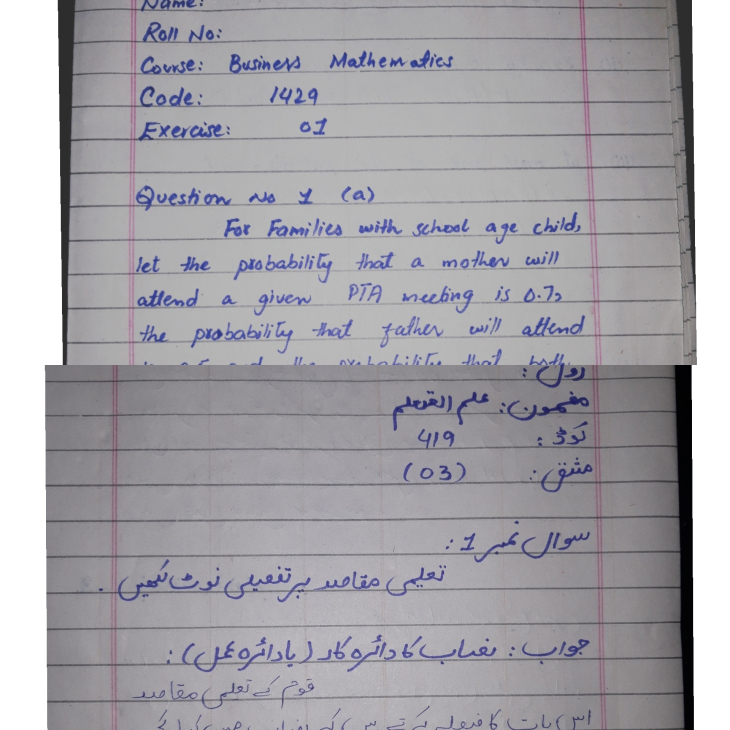 Name:
Roll No:
Course: Business Mathematics
Code: 1429
Exercise: 01
Question No 1 (a)
For Families with school age child,
let the probability that a mother will
attend a given PTA meeting is 0.7,
the probability that father will attend
the probability that both
رول:
مضمون: علم التعلم
کوڈ: 419
مشق: (03)
سوال نمبر 1:
تعلیمی مقاصد پر تفصیلی نوٹ لکھیں.
جواب: نصاب کا دائرہ کار (یا دائرہ عمل):
قوم کے تعلیمی مقاصد
اس بات کا فیصلہ کرتے ہیں کہ نصاب میں کیا کچھ